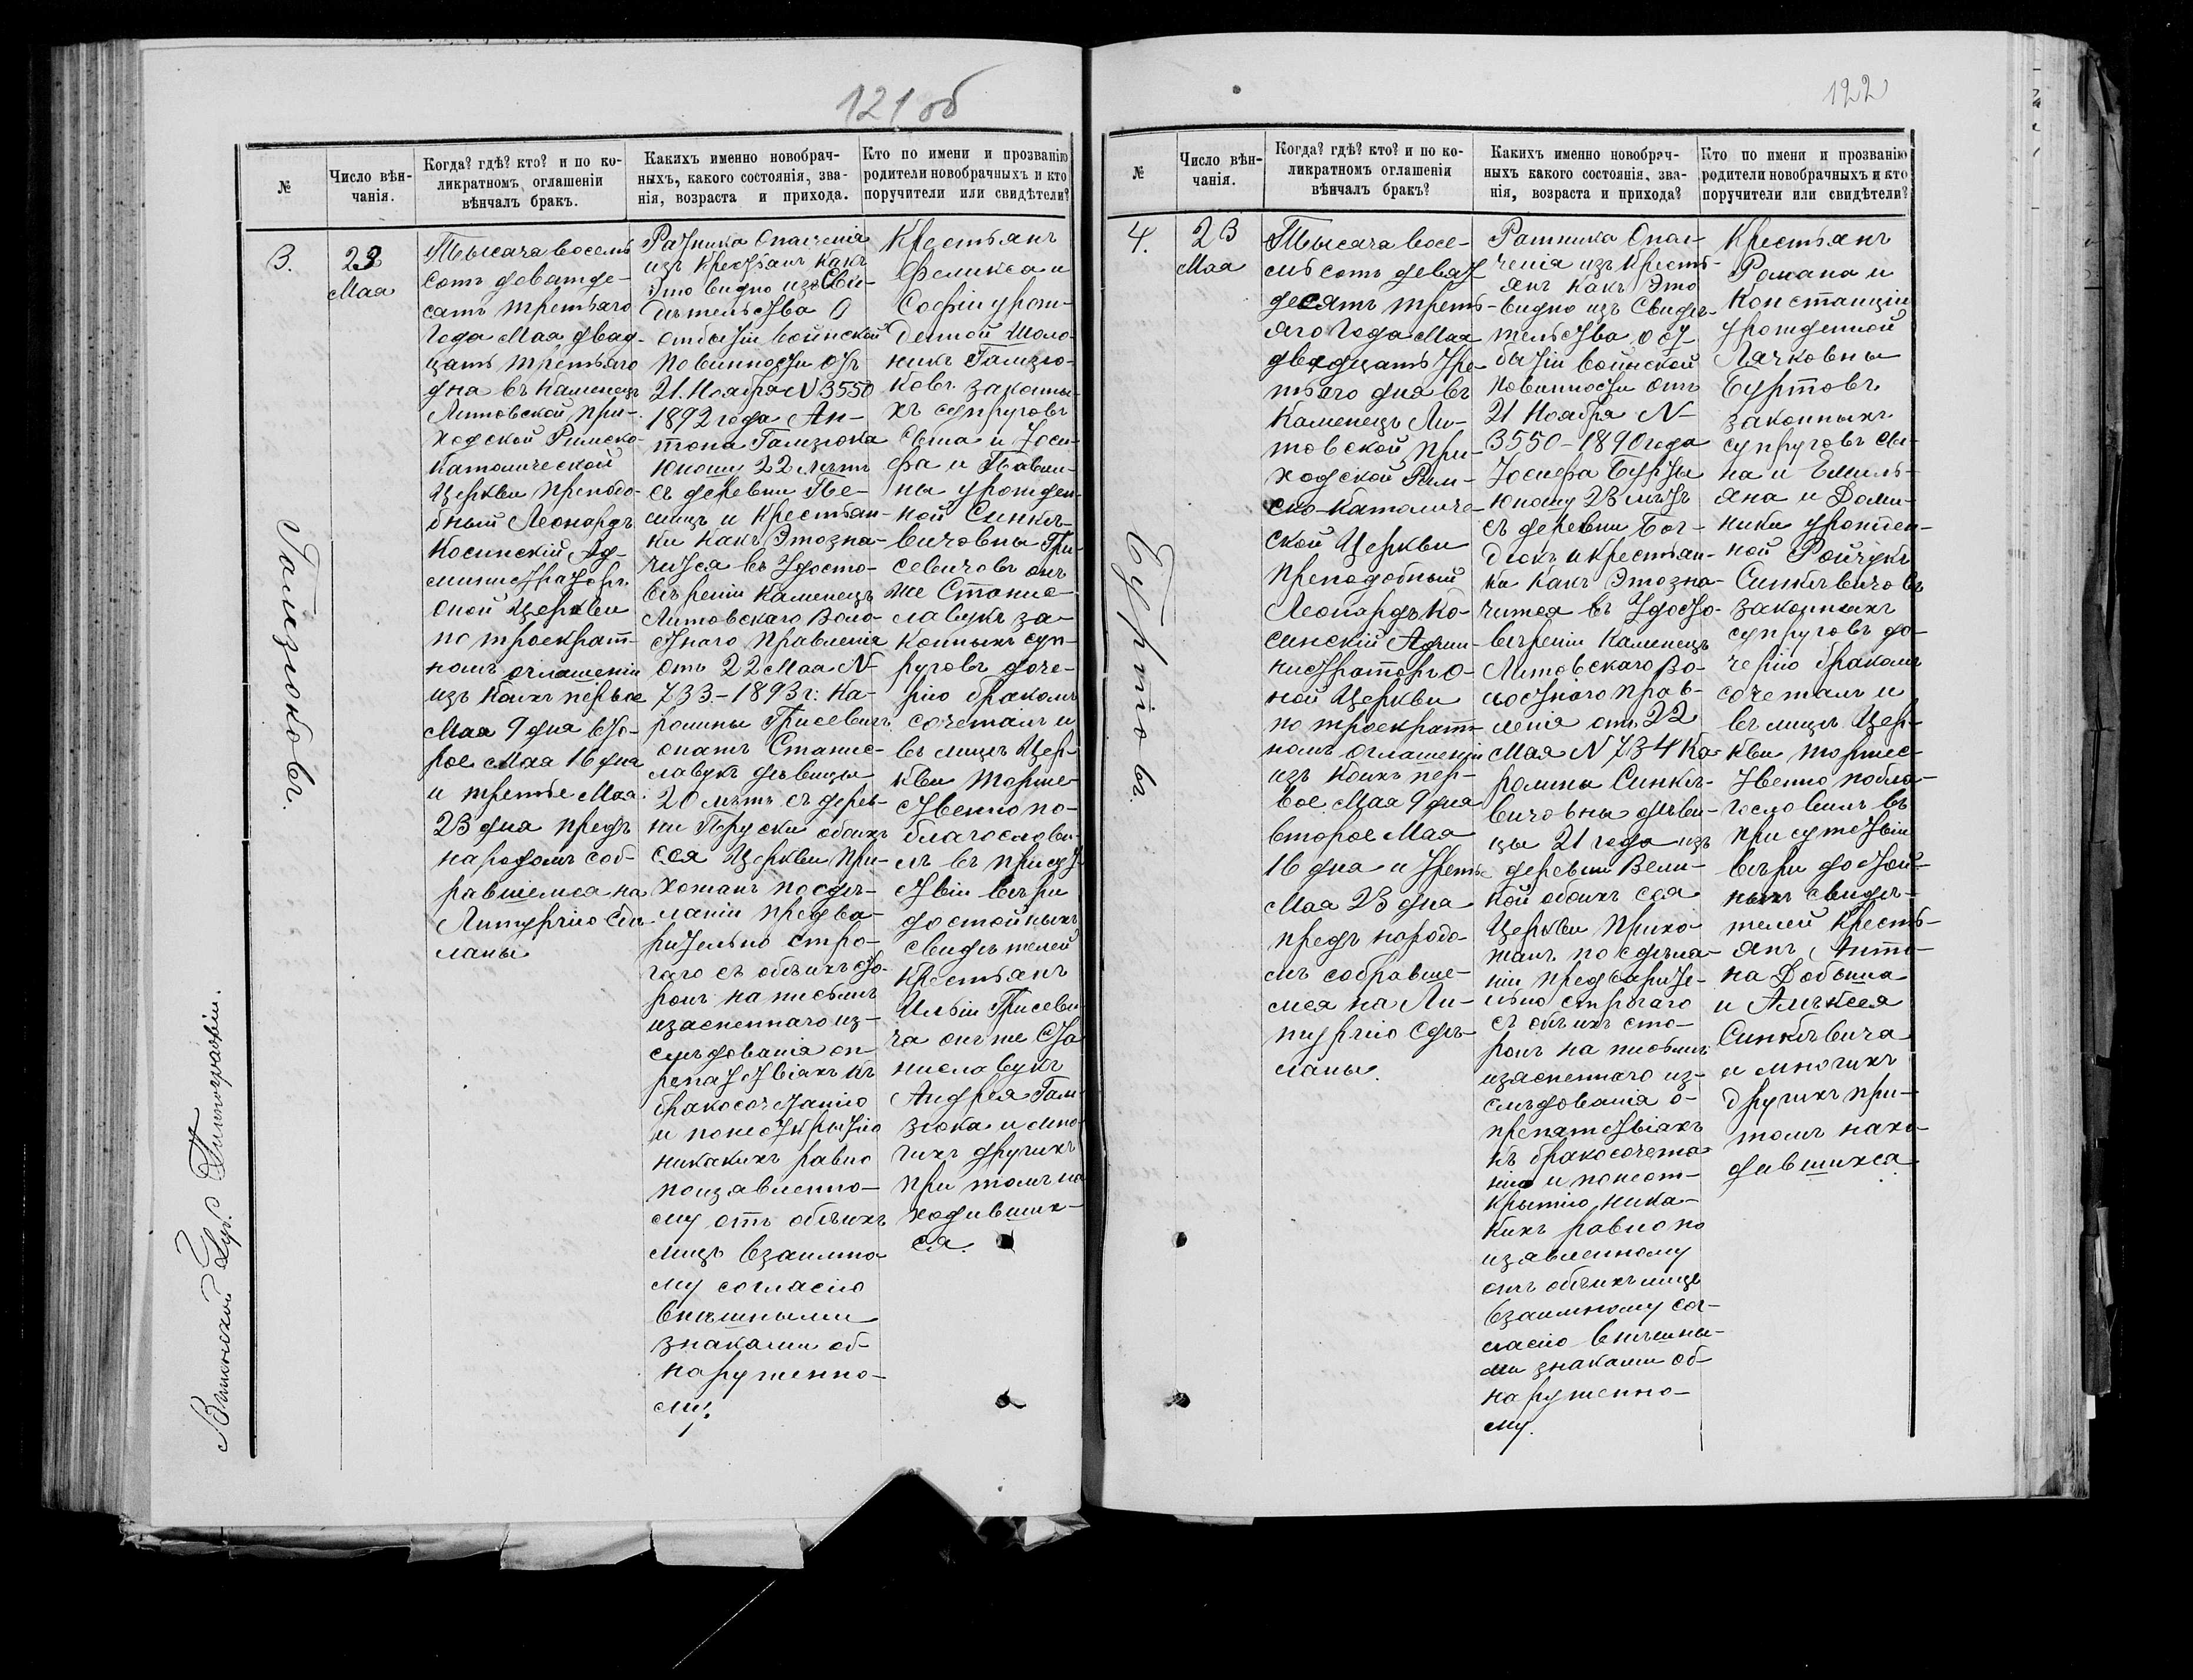 121 об
№
Число вѣн-
чанія.
Когда? гдѣ? кто? и по ко-
ликратномъ оглашеніи
вѣнчалъ бракъ.
Какихъ именно новобрач-
ныхъ, какого состоянія, зва-
нія, возраста и прихода.
Кто по имени и прозванію
родители новобрачныхъ и кто
поручители или свидѣтели?
3.
Гамзюковъ.
23
Мая
Тысяча восемь
сотъ девятде-
сятъ третьяго
Года Мая двад-
цать третьяго
дня въ Каменецъ
Литовской При-
ходской Римско-
Католической
Церкви Преподо-
бный Леонардъ
Косинскій Ад-
министраторъ
оной Церкви
по троекрат-
номъ оглашеніи
изъ коихъ первое
Мая 9 дня вто-
рое Мая 16 дня
и третье Мая
23 дня предъ
народомъ соб-
равшемся на
Литургію сдѣ-
ланы
Ратника Ополченія
изъ Крестьянъ какъ
это видно изъ Сви-
дѣтельства о
отбытіи воинской
повинности отъ
21. Ноября N 3550
1892 года Ан-
тона Гамзюка
Юношу 22 лѣтъ
съ деревни Пе-
лищъ и Крестьян-
ки какъ Это зна-
чится въ Удосто-
вѣреніи Каменецъ
Литовскаго Воло-
стнаго Правленія
отъ 22 Мая N-
733-1893 г: Ка-
ролины Грисевичъ
онаже Станис-
лавукъ дѣвицы
20 лѣтъ съ дерев-
ни Пруски обоихъ
сея Церкви При-
хожанъ по сдѣ-
ланіи предва-
рительно стро-
гаго съ обѣихъ сто-
ронъ на письмѣ
изясненнаго из-
слѣдованія оп-
репятствіяхъ къ
бракосочетанію
и понеоткрытію
никакихъ равно
поизявленно-
му отъ обѣихъ
лицъ взаимно
му согласію
внѣшными
знаками об-
наруженно-
му.
Крестьянъ
Феликса и
Софіи урож-
денной Шоло-
никъ Гамзю-
ковъ законны-
хъ супруговъ
сына и Іоси-
фа и Павли-
ны урожден-
ной Синкѣ-
вичовны Гри-
севичовъ онъ
же Станис-
лавукъ за-
конныхъ суп-
руговъ доче-
рію бракомъ
сочеталъ и
въ лицѣ Цер-
кви торже-
ственно по-
благослови-
лъ въ присут-
ствіи вѣри
достойныхъ
свидѣтелей
Крестьянъ
Ильіи Грисеви-
ча онъ же Ста
ниславукъ
Андрея Гам-
зюка и мно-
гихъ другихъ
при томъ на
ходивших-
ся.
Виленской Губ. Типографіи.
122
№
Число вѣн-
чанія.
Когда? гдѣ? кто? и по ко-
ликратномъ оглашеніи
вѣнчалъ бракъ?
Какихъ именно новобрач-
ныхъ какого состоянія, зва-
нія, возраста и прихода?
Кто по имени и прозванію
родители новобрачныхъ и кто
поручители или свидѣтели?
4.
Буртовъ.
23
Мая
Тысяча восе-
мь сотъ девят
десятъ треть-
яго Года Мая
двадцать тре-
тьяго дня въ
Каменецъ Ли-
товской При-
ходской Рим-
ско-Католиче-
ской Церкви
Преподобный
Леонардъ Ко-
синскій Адми-
нистраторъ о-
ной Церкви
по троекрат-
номъ оглашеніи
изъ коихъ пер-
вое Мая 9 дня
второе Мая
16 дня и треть
Мая 23 дня
предъ народо-
мъ собравше-
мся на Ли-
тургію сдѣ-
ланы.
Ратника Опол-
ченія изъ Кресть-
янъ какъ Это
видно изъ Свидѣ-
тельства о от-
бытіи воинской
повинности отъ
21 Ноября N-
3550-1890 года
Іосифа Бурты
Юношу 23 лѣтъ
съ деревни Бог-
дюкъ и крестьян-
ки какъ Это зна-
чится въ Удосто-
вѣреніи Каменецъ
Литовскаго Во-
лостнаго Прав-
ленія отъ 22
Мая N 734 Ка-
ролины Синкѣ-
вичовны дѣви-
цы 21 года изъ
деревни Вели-
кой обоихъ сея
Церкви Прихо
жанъ по сдѣла-
ніи предварите-
льно строгаго
съ обѣихъ сто-
ронъ на письмѣ
изясненнаго из-
слѣдованія о-
препятствіяхъ
къ бракосочета-
нію и понеот-
крытію ника-
кихъ равно по
изявленному
отъ обѣихъ лицъ
взаимному сог-
ласію внѣшны-
ми знаками об-
наруженно-
му.
Крестьянъ
Романа и
Констанціи
урожденной
Лячковны
Буртовъ
законныхъ
супруговъ сы-
на и Емиль-
яна и Доми-
ники урожден-
ной Ройчукъ
Синкѣвичовъ
законныхъ
супруговъ до-
черію бракомъ
сочеталъ и
въ лицѣ Цер-
кви торжес-
твенно побла-
гословилъ въ
присутствіи
вѣри достой-
ныхъ свидѣ-
телей Кресть-
янъ Анто-
на Добыша
и Алѣксея
Синкѣвича
и многихъ
другихъ при-
томъ нахо-
дившихся.